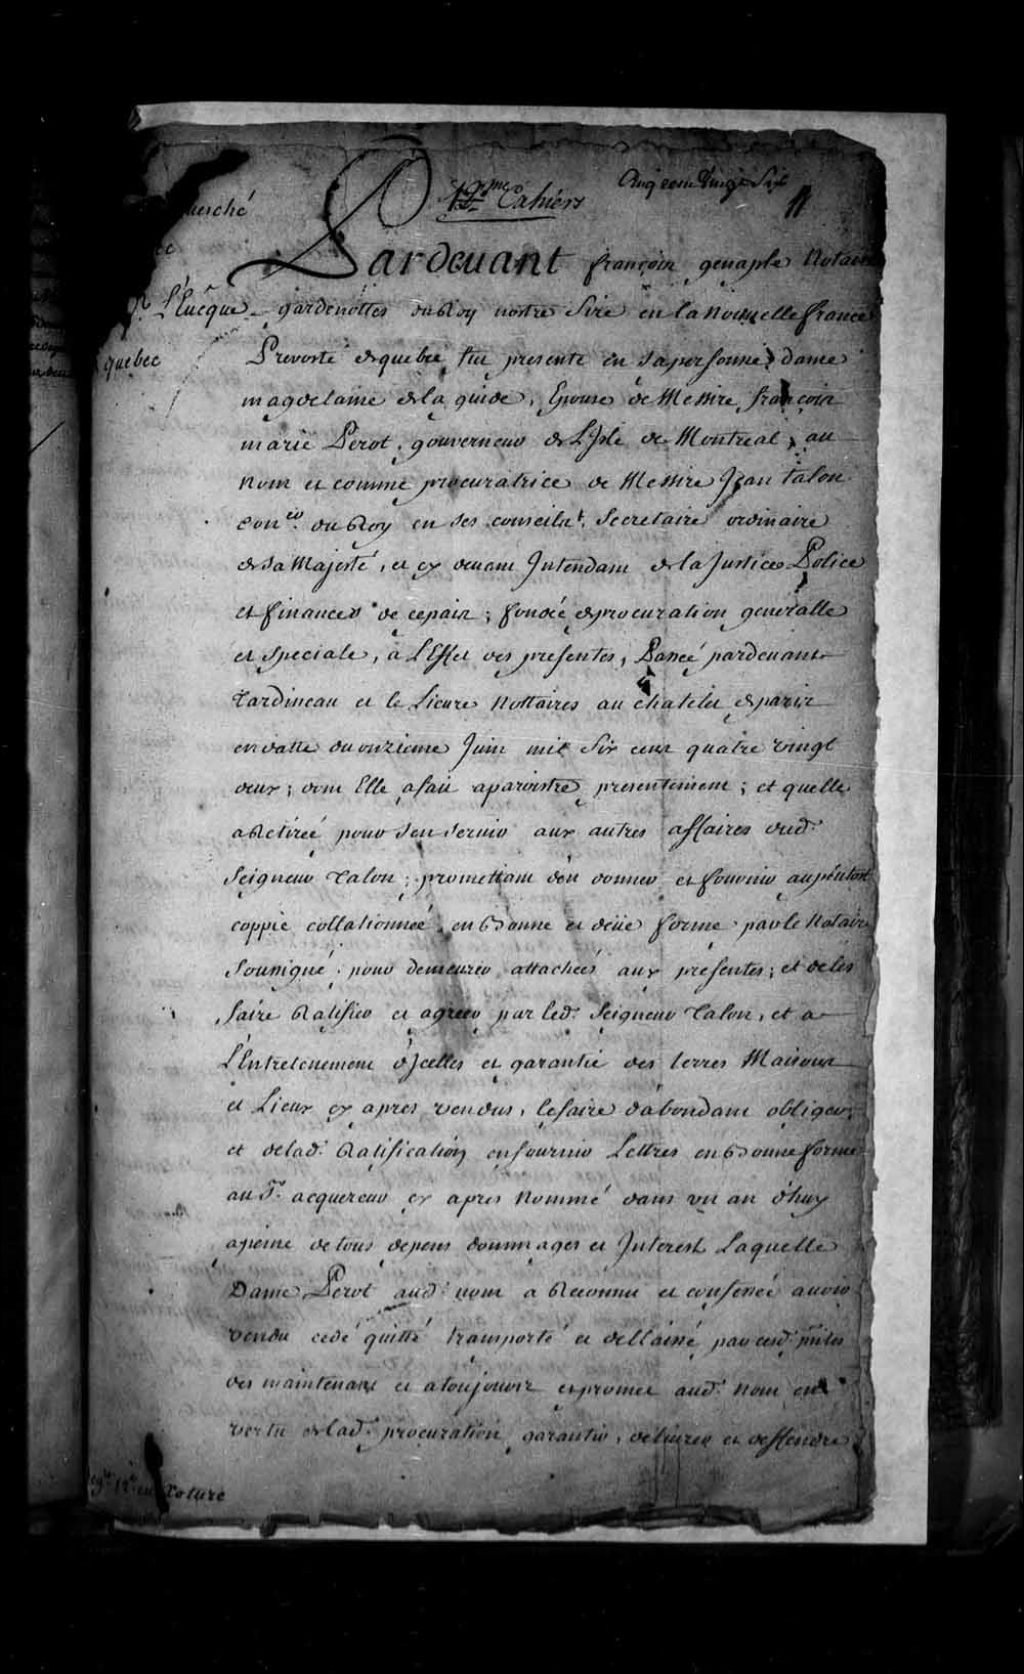 12me Cahiers
Cinq cent Vingt Six
11
erché
L'Eueque
quebec
Pardeuant françois genaple Notaire
gardenottes du Roy nostre Sire en la Nouuelle france
Prevosté de quebec, fut presente en sa personne, dame
magdelaine de la guide, Epouse de Messire françois
marie Perot, gouverneur de L'Isle de Montreal, au
nom et comme procuratrice de Messire Jean talon
Con.er du Roy en ses conseils, Secretaire ordinaire
de sa Majesté, et cy deuant Intendant de la Justice Police
et finances de ce pais; fondée de procuration generalle
et speciale, a L'Effet des presentes, Passé pardeuant
Tardineau et le Lieure Nottaires au chatelet de paris
en datte du onzieme Juin mil Six cent quatre vingt
deux; dont Elle a fait aparoistre presentement; et quelle
a Retirée pour s'en seruir aux autres affaires dud.
Seigneur Talon; promettant d'en donner et fournir au plutost
coppie collationneé en Bonne et deüe forme par le Notaire
Sousigné, pour demeurer attachées aux presentes; et de les
faire Ratifier et agreer par led. Seigneur Talon, et a
L'Entretenement d'Jcelles et garantie des terres Maisons
et Lieux cy apres vendus, le faire d'abondant obliger;
et de lad. Ratification en fournir Lettres en Bonne forme
au S. acquereur cy apres Nommé dans un an d'huy
a peine de tous depens dommages et Interest Laquelle
Dame Perot aud. nom a Reconnu et confessé auoir
vendu cedé quitté transporté et dellaissé par cesd. pntes
des maintenant et a toujours et promet aud. Nom en
vertu de lad. procuration garantir, deliurer et deffendre
en Roture